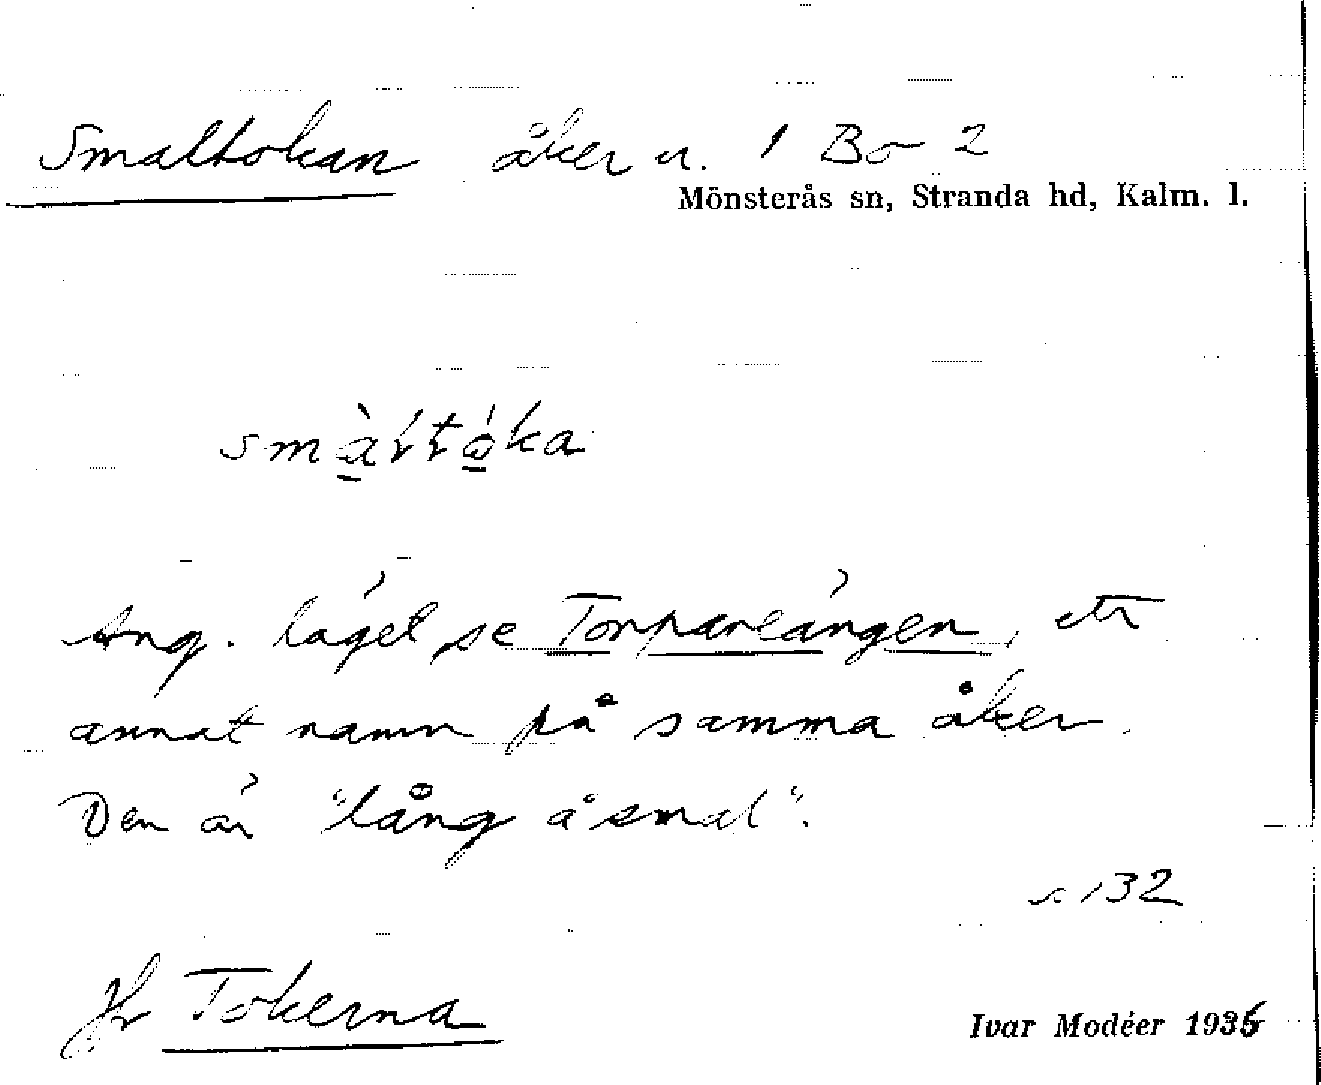 Smaltokan åker u. 1 Bo 2
Mönsterås sn, Stranda hd, Kalm. l.
Ang. läget se Torpareängen, ett
annat namn på samma åker.
Den är "lång å smal".
s. 132
Jfr Tokerna
Ivar Modéer 1936